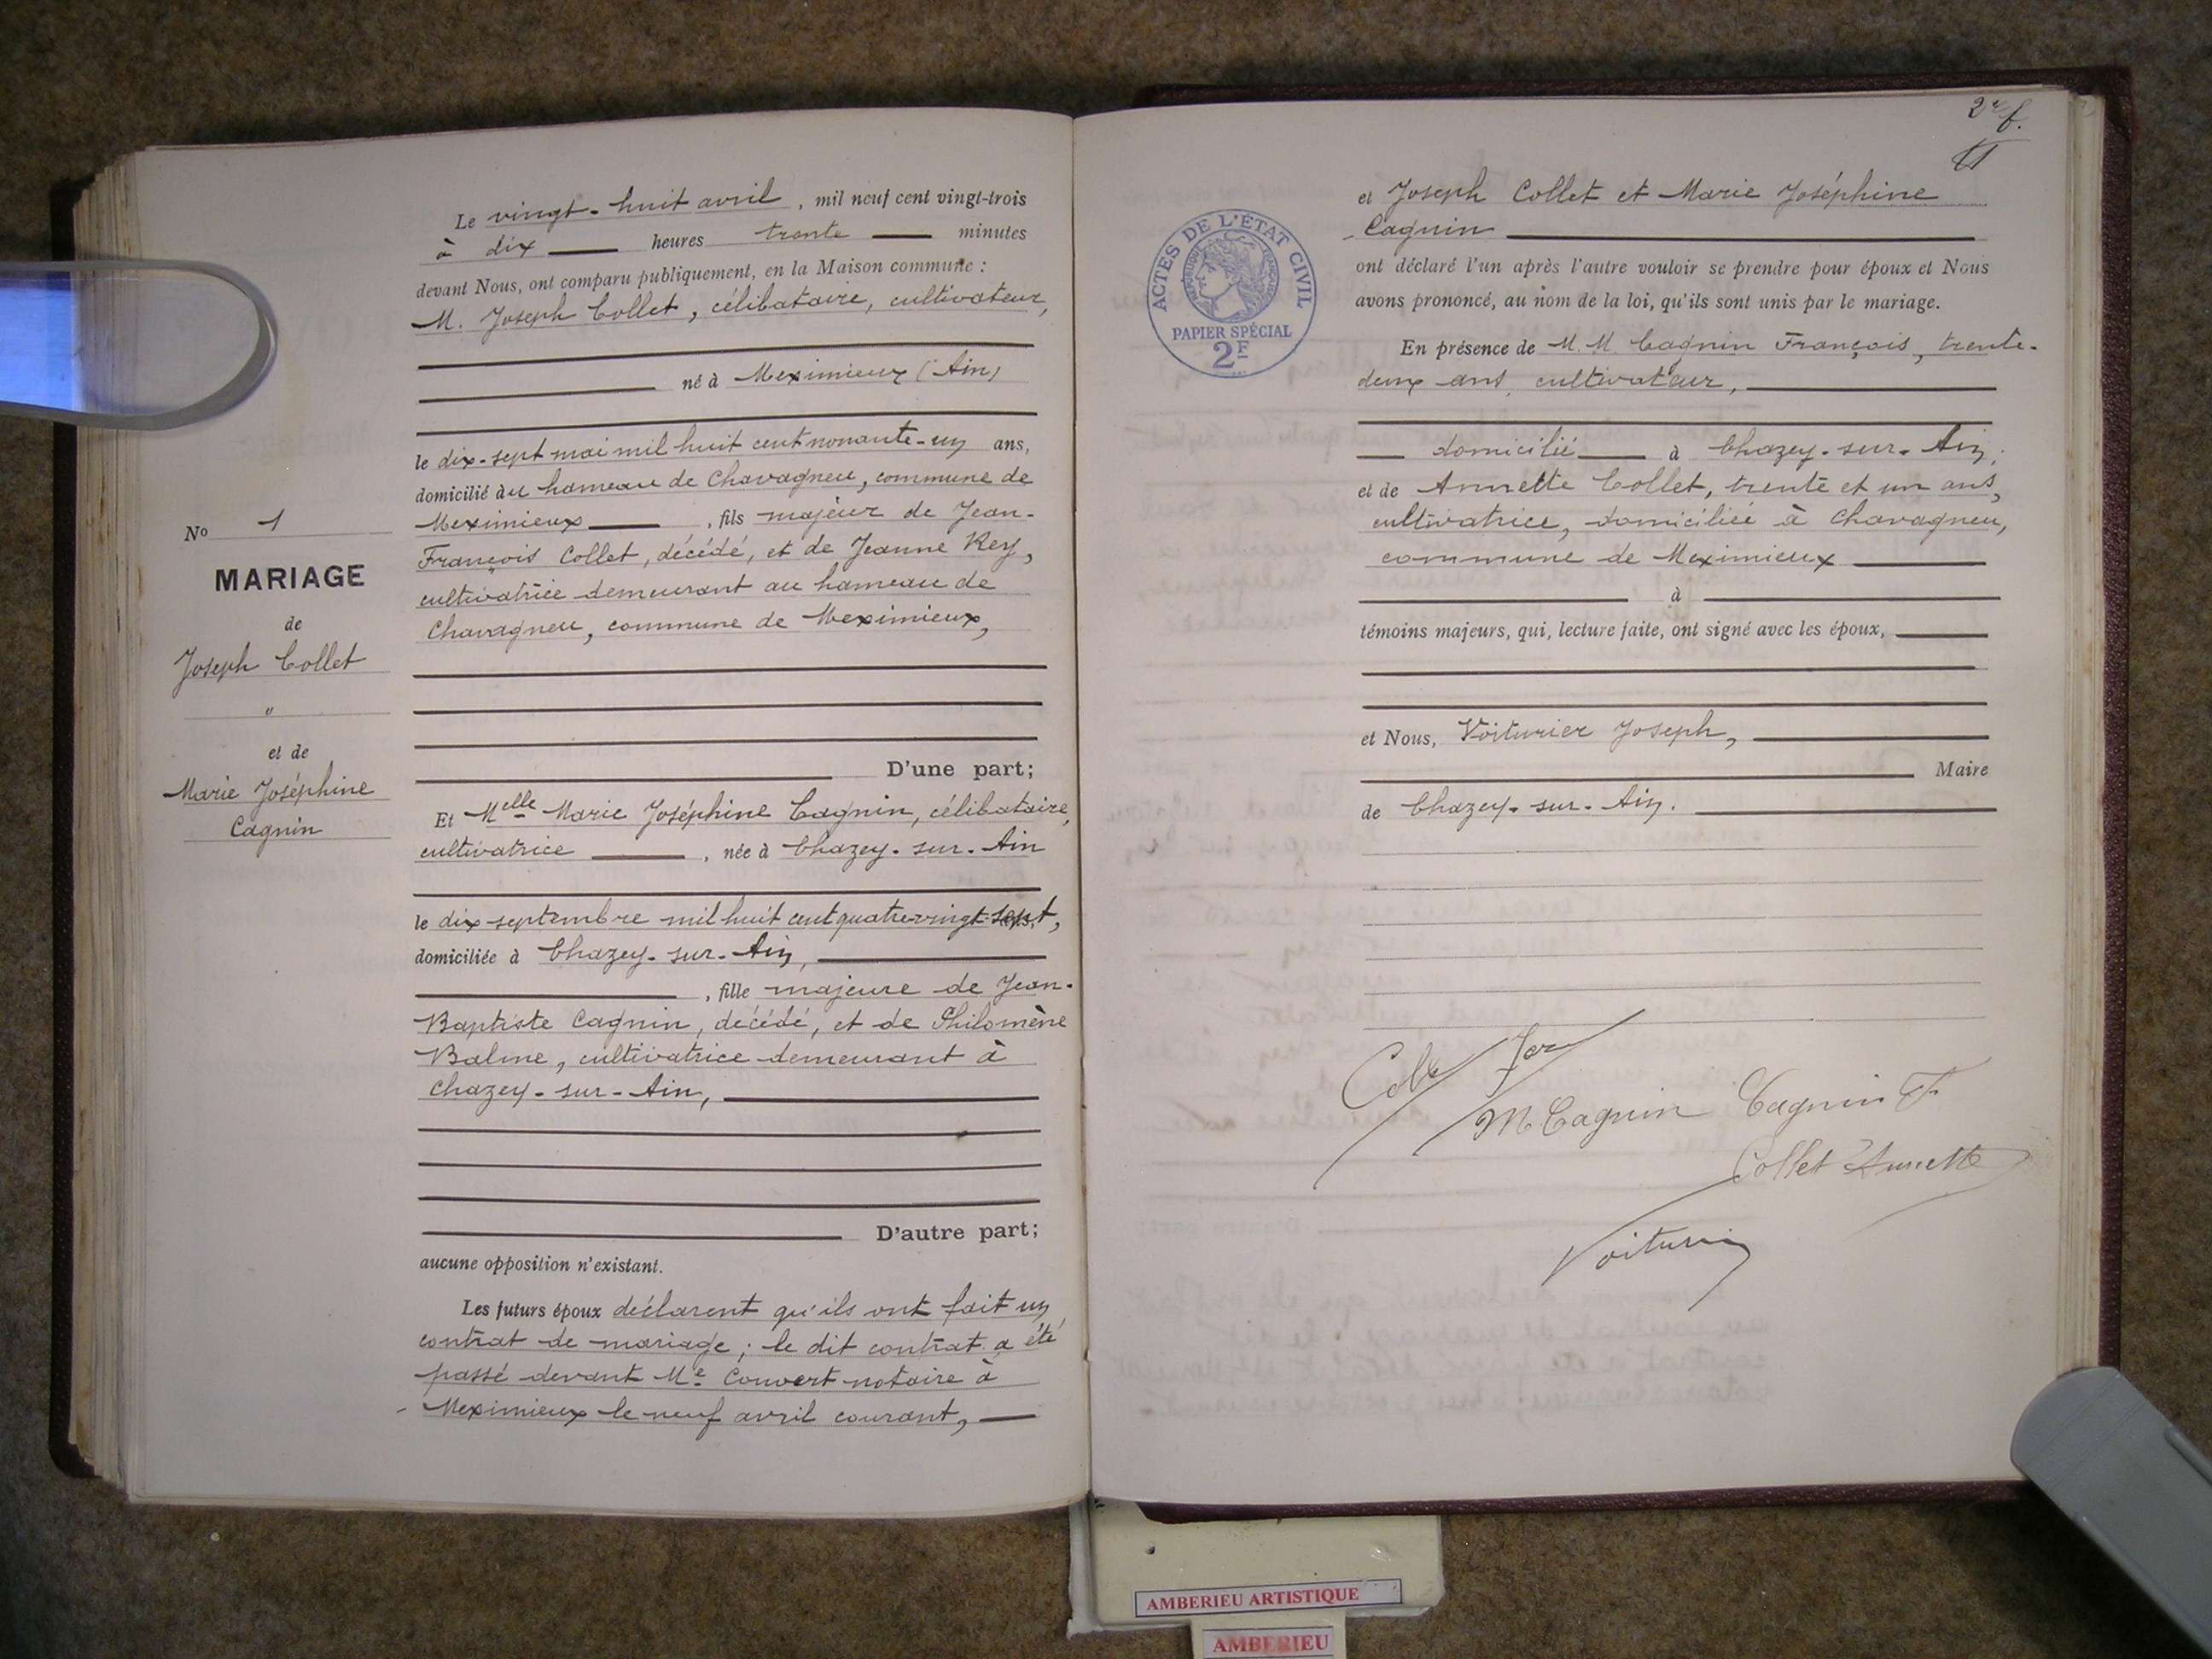 No 1
MARIAGE
de
Joseph Collet
"
et de
Marie Joséphine
Cagnin
Le vingt-huit avril, mil neuf cent vingt-trois
à dix heures trente minutes
devant Nous, ont comparu publiquement, en la Maison commune :
M. Joseph Collet, célibataire, cultivateur,
né à Meximieux (Ain)
le dix-sept mai mil huit cent nonante-un ans,
domicilié au hameau de Chavagneu, commune de
Meximieux, fils majeur de Jean-
François Collet, décédé, et de Jeanne Rey,
cultivatrice demeurant au hameau de
Chavagneu, commune de Meximieux,
D'une part;
Et Melle Marie Joséphine Cagnin, célibataire,
cultivatrice, née à Chazey-sur-Ain
le dix septembre mil huit cent quatre-vingt-sept,
domiciliée à Chazey-sur-Ain,
, fille majeure de Jean-
Baptiste Cagnin, décédé, et de Philomène
Balme, cultivatrice demeurant à
Chazey-sur-Ain,
D'autre part;
aucune opposition n'existant.
Les futurs époux déclarent qu'ils ont fait un
contrat de mariage ; le dit contrat a été
passé devant Me Convert notaire à
Meximieux le neuf avril courant,
2e f.
ACTES DE L'ÉTAT CIVIL
RÉPUBLIQUE FRANÇAISE
PAPIER SPÉCIAL
2F
et Joseph Collet et Marie Joséphine
Cagnin
ont déclaré l'un après l'autre vouloir se prendre pour époux et Nous
avons prononcé, au nom de la loi, qu'ils sont unis par le mariage.
En présence de M.M. Cagnin François, trente-
deux ans, cultivateur,
domicilié à Chazey-sur-Ain ;
et de Annette Collet, trente et un ans,
cultivatrice, domiciliée à Chavagneu,
commune de Meximieux
à
témoins majeurs, qui, lecture faite, ont signé avec les époux,
et Nous, Voiturier Joseph,
Maire
de Chazey-sur-Ain.
M Cagnin Cagnin F
Collet Annette
Voiturier
AMBERIEU ARTISTIQUE
AMBERIEU